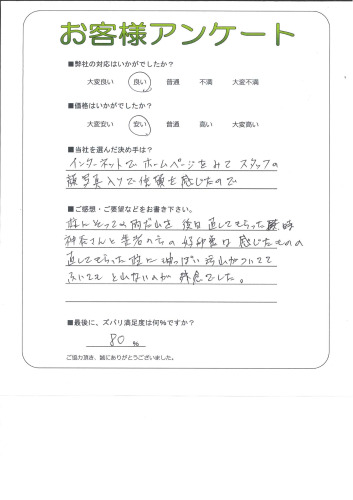 お客様アンケート
■弊社の対応はいかがでしたか?
大変良い 良い 普通 不満 大変不満
■価格はいかがでしたか?
大変安い 安い 普通 高い 大変高い
■当社を選んだ決め手は?
インターネットでホームページをみてスタッフの
顔写真入りで信頼を感じたので
■ご感想・ご要望などをお書き下さい。
後日直してもらった時
さんと 業者の方の好印象は感じたものの
直してもらった 汚れがついてて
ふいても とれないのが 残念でした。
■最後に、ズバリ満足度は何%ですか?
80 %
ご協力頂き、誠にありがとうございました。